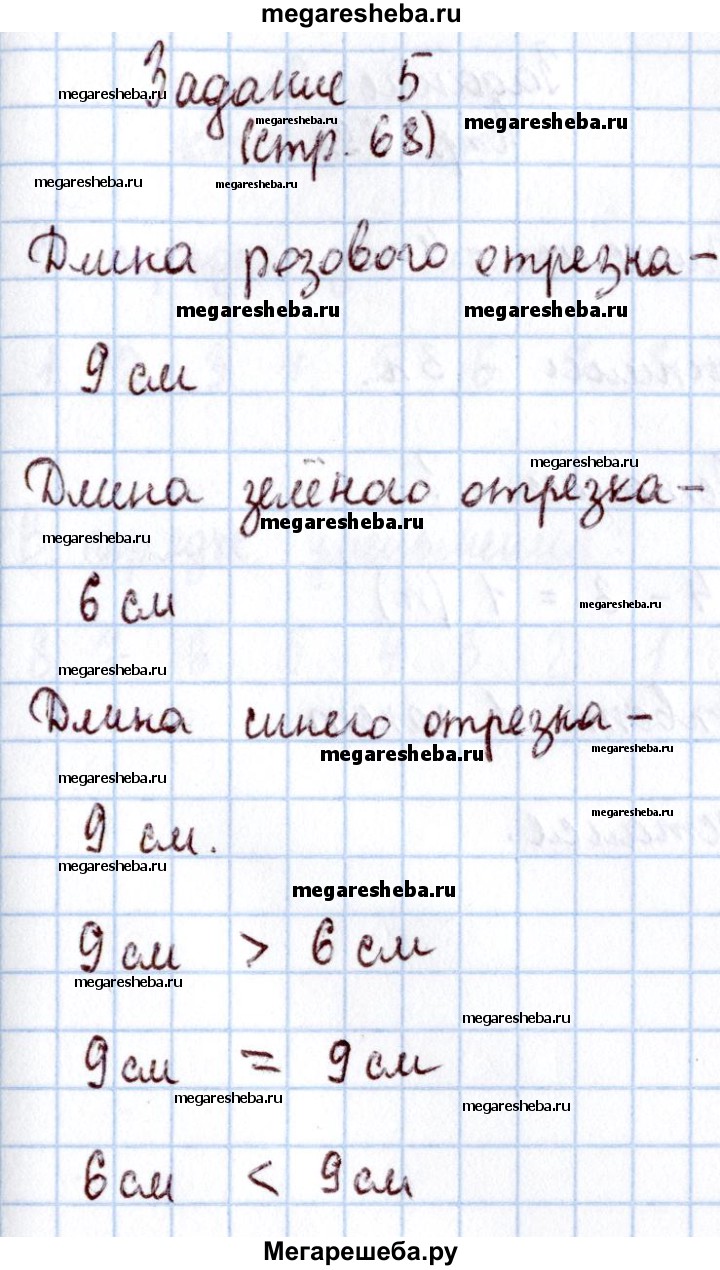 megaresheba.ru
Задание 5
megaresheba.ru
megaresheba.ru
megaresheba.ru
(стр. 68)
megaresheba.ru
megaresheba.ru
Длина розового отрезка –
megaresheba.ru
megaresheba.ru
9 см
megaresheba.ru
Длина зелёного отрезка –
megaresheba.ru
megaresheba.ru
6 см
megaresheba.ru
megaresheba.ru
Длина синего отрезка –
megaresheba.ru
megaresheba.ru
megaresheba.ru
9 см.
megaresheba.ru
megaresheba.ru
megaresheba.ru
9 см > 6 см
megaresheba.ru
megaresheba.ru
9 см = 9 см
megaresheba.ru
megaresheba.ru
6 см < 9 см
Мегарешеба.ру